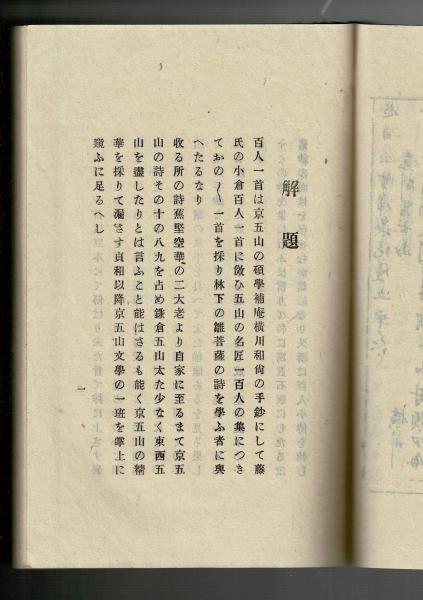 解題
百人一首は京五山の碩學補庵橫川和尙の手鈔にして藤
氏の小倉百人一首に倣ひ五山の名匠一百人の集につき
ておの〳〵一首を採り林下の雛菩薩の詩を學ふ者に與
へたるなり
收る所の詩蕉堅空華の二大老より自家に至るまて京五
山の詩その十の八九を占め鎌倉五山太た少なく東西五
山を盡したりとは言ふこと能はさるも能く京五山の精
華を採りて漏さす貞和以降京五山文學の一班を掌上に
窺ふに足るへし
一